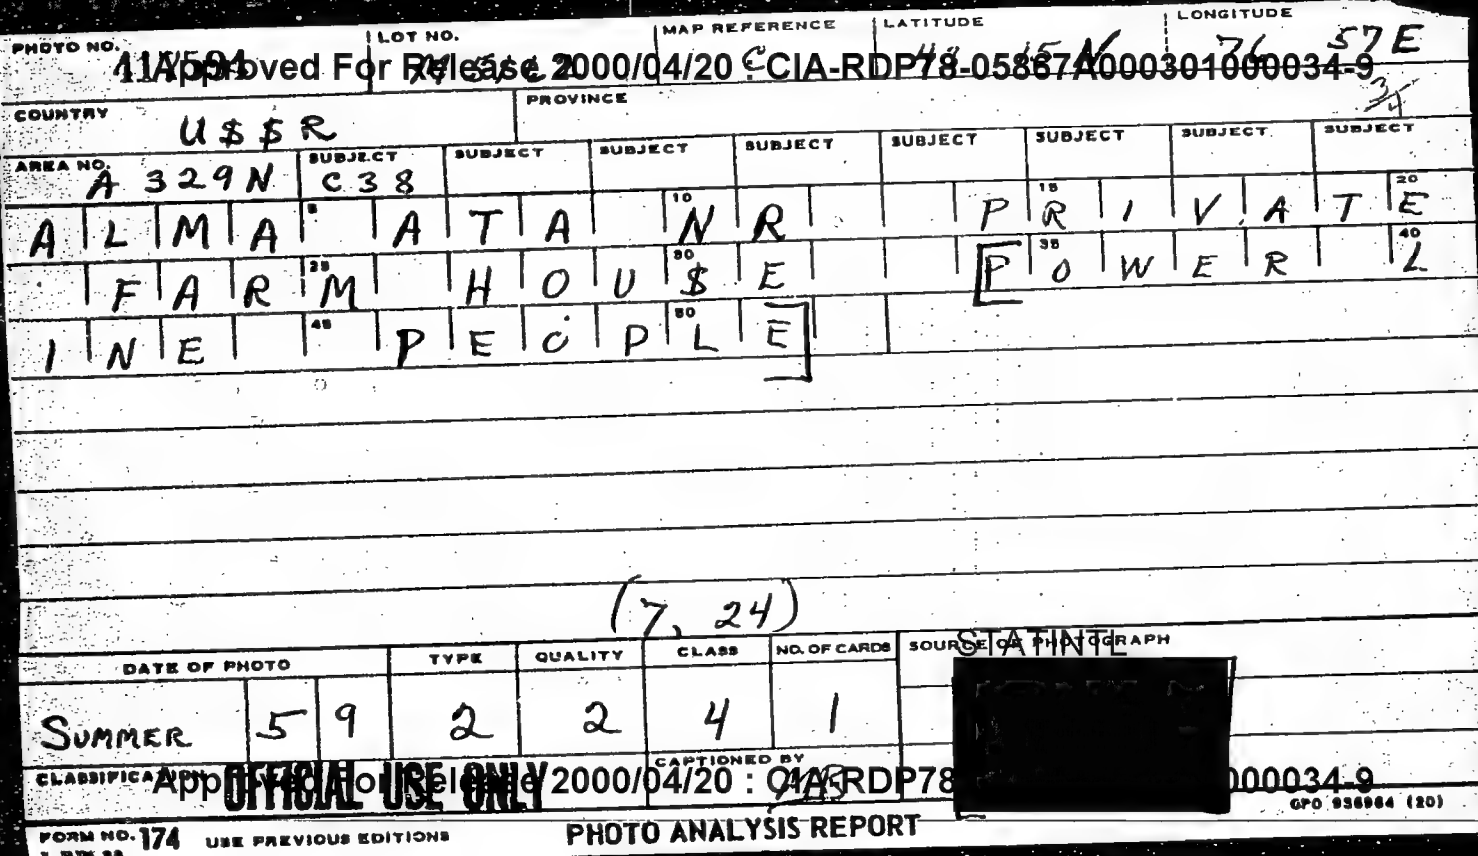 PHOTO NO. LOT NO. MAP REFERENCE LATITUDE LONGITUDE
15 N 76 57 E
Approved For Release 2000/04/20 : CIA-RDP78-05867A000301000034-9
COUNTRY PROVINCE 3/4
U$$R
AREA NO. SUBJECT SUBJECT SUBJECT SUBJECT SUBJECT SUBJECT SUBJECT SUBJECT
A 329N C38
5 10 15 20
ALMA ATA NR PRIVATE
25 30 35 40
FARM HOU$E [POWER L
45 50
INE PEOPLE]
(7, 24)
DATE OF PHOTO TYPE QUALITY CLASS NO. OF CARDS SOURCE OF PHOTOGRAPH
STATINTL
SUMMER 59 2 2 4 1
CLASSIFICATION OFFICIAL USE ONLY CAPTIONED BY
Approved For Release 2000/04/20 : CIA-RDP78 000034-9
GPO 936964 (20)
FORM NO. 174 USE PREVIOUS EDITIONS PHOTO ANALYSIS REPORT